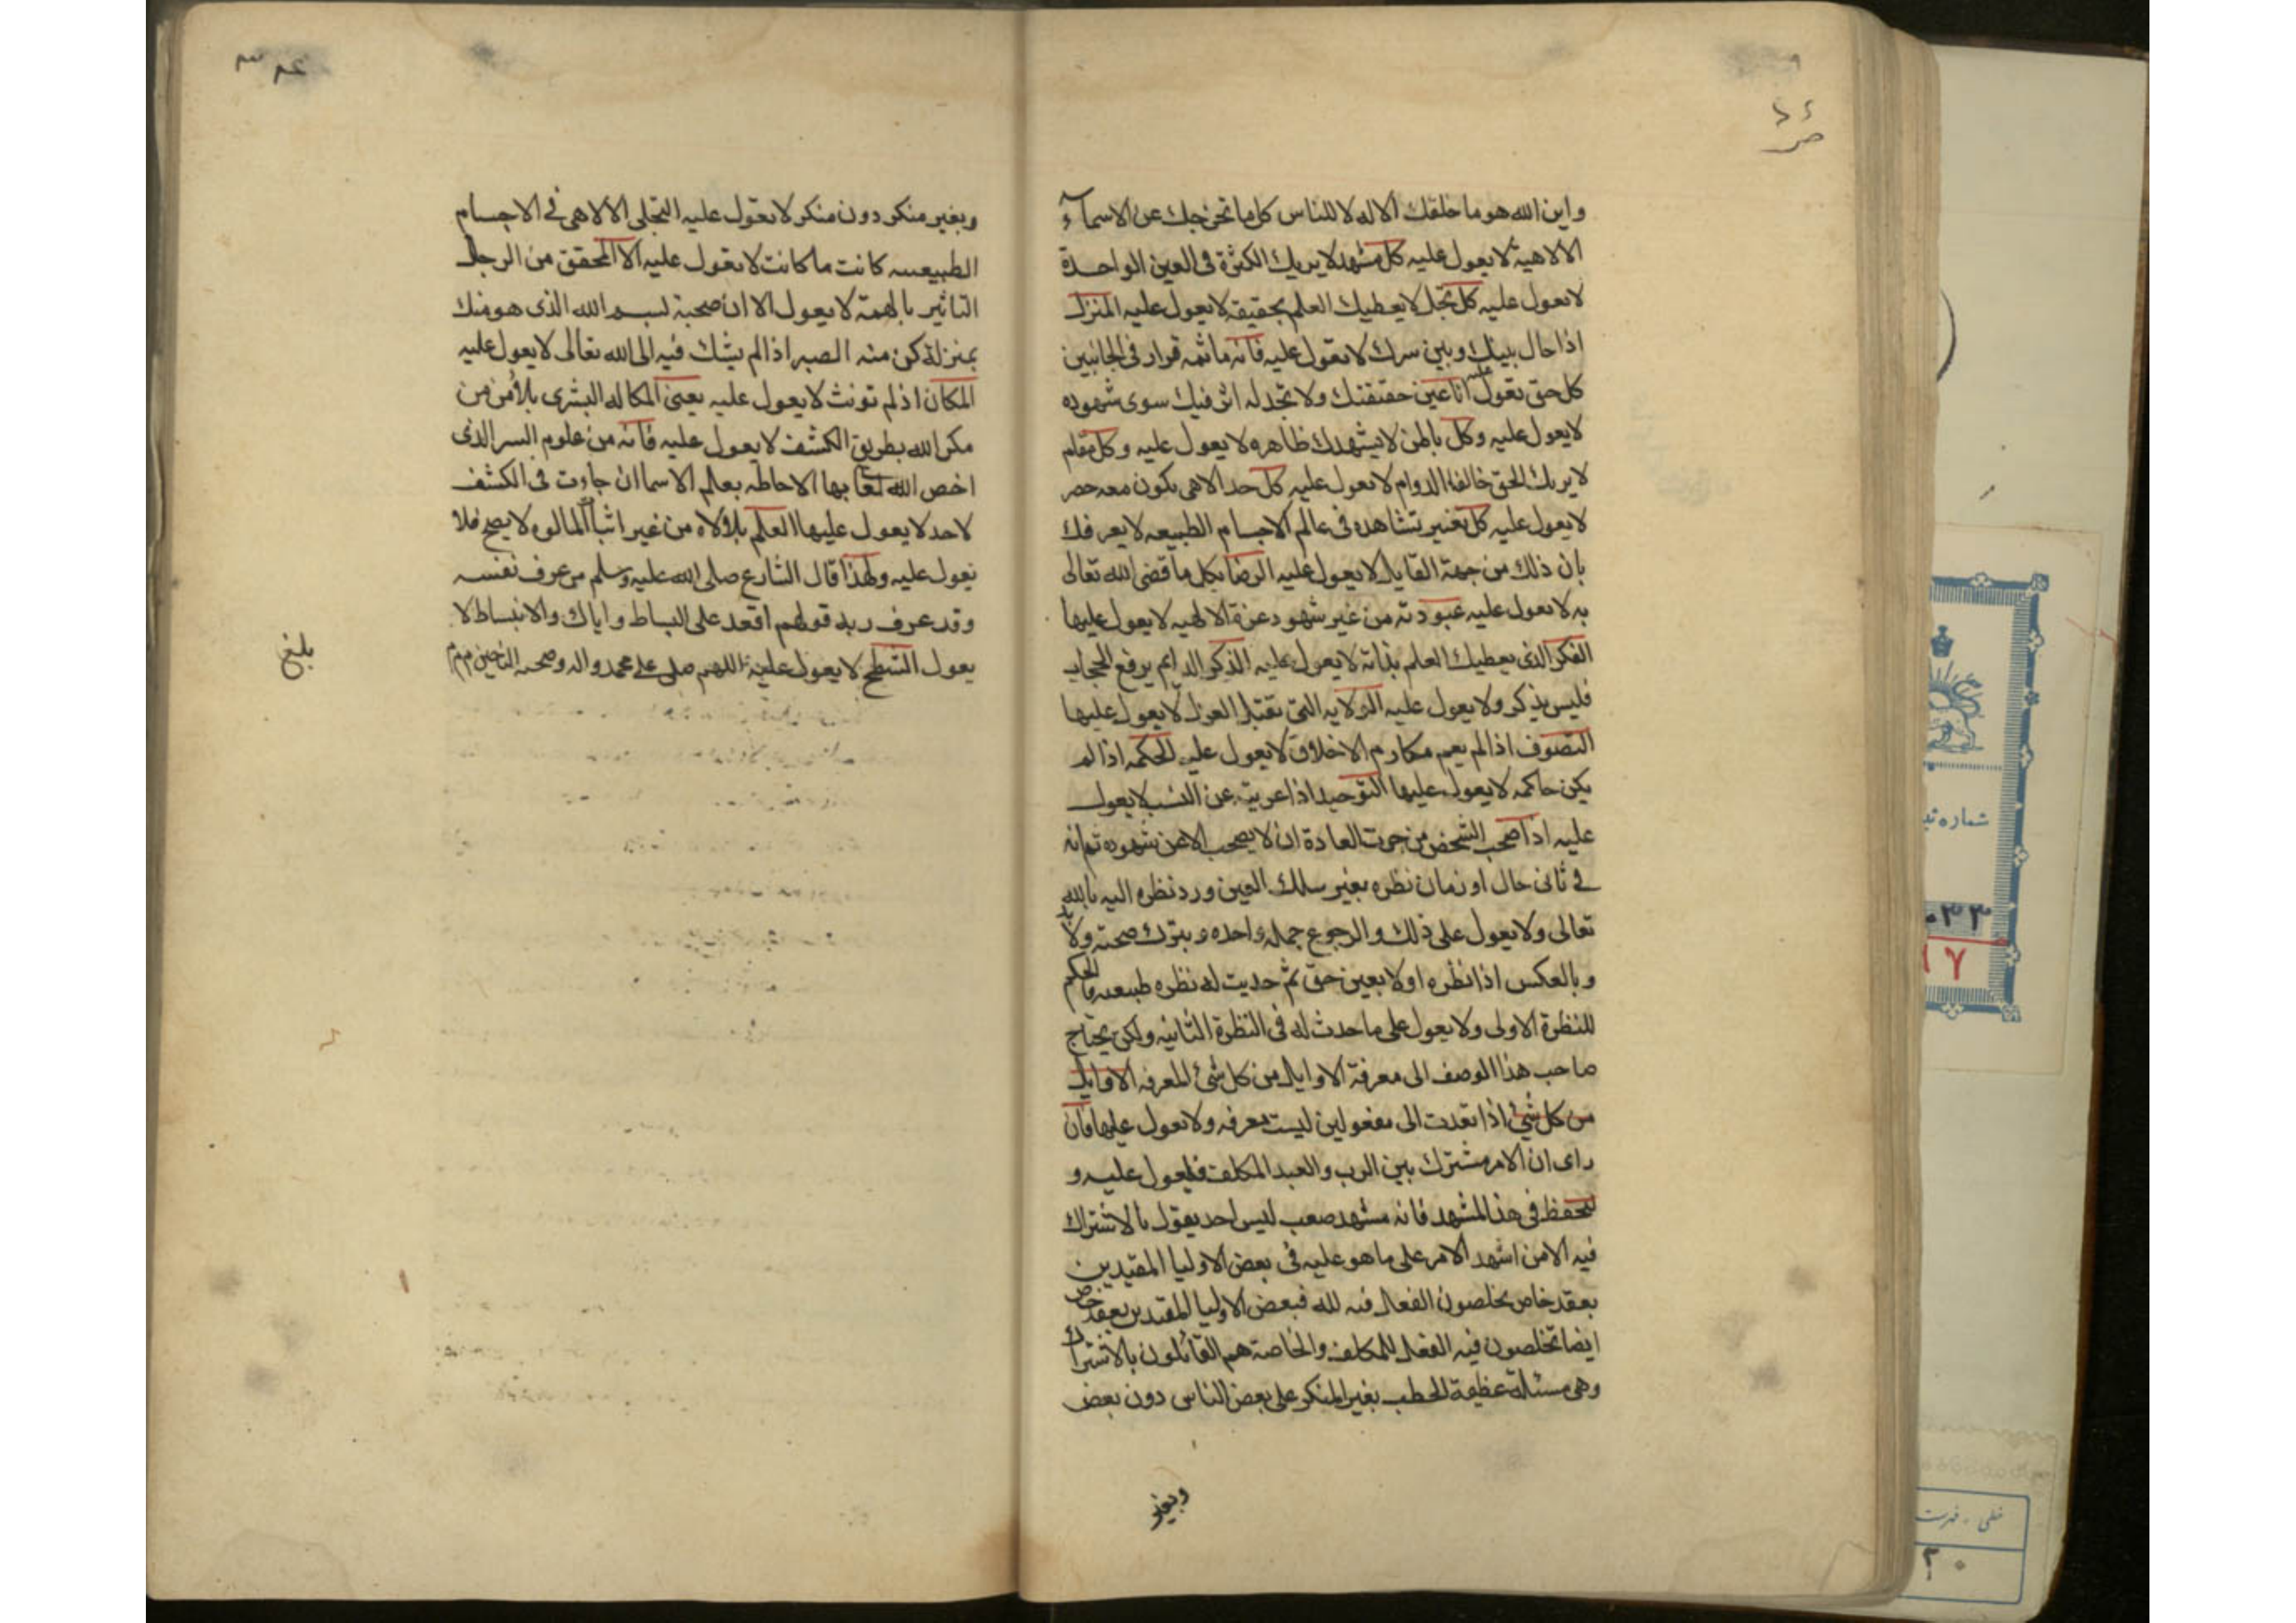 واين الله هو ما خلقك الا له لا للناس كل ما تحرجك عن الاسماء
الالاهية لا يعول عليه كل مشهد لا يريك الكثرة فى العين الواحدة
لا يعول عليه كل تجل لا يعطيك العلم بحقيقة لا يعول عليه المنزل
اذا حال بينك وبين سرك لا تعول عليه فانه ما ثمه قرار فى الجانبين
كل حق تقول انا عين حقيقتك ولا تجد له اثر فيك سوى شهوده
لا يعول عليه وكل باطن لا يشهدك ظاهره لا يعول عليه وكل مقام
لا يريك الحق خالقا الدوام لا يعول عليه كل حد الاهى يكون معه حصر
لا يعول عليه كل تغير تشاهده فى عالم الاجسام الطبيعه لا يعرفك
بان ذلك من جهة القابل لا يعول عليه الرضا بكل ما قضى الله تعالى
به لا يعول عليه عبودته من غير شهود عزة الالهيه لا يعول عليها
الفكر الذى يعطيك العلم بذاته لا يعول عليه الذكر الدايم يرفع الحجاب
فليس بذكر ولا يعول عليه الولايه التى تقبل العزل لا يعول عليها
التصوف اذا لم يعم مكارم الاخلاق لا يعول عليه الحكمه اذا لم
يكن حاكمه لا يعول عليها التوحيد اذا عريته عن النسب لا يعول
عليه اذا صحب الشخص من جرت العادة ان لا يصحب الا من شهوده ثم انه
فى ثانى حال او زمان نظره بغير سلك العين ورد نظره اليه بالله
تعالى ولا يعول على ذلك والرجوع جملة واحده وبترك صحبته ولا بد
وبالعكس اذا نظره اولا بعين حق ثم حديث له نظره طبيعه فالحكم
للنظرة الاولى ولا يعول على ما حدث له فى النظرة الثانيه ولكن يحتاج
صاحب هذا الوصف الى معرفة الاوايل من كل شئ المعرفه الاوايل
من كل شئ اذا تعدت الى مفعولين ليست معرفه ولا يعول عليها فان
راى ان الامر مشترك بين الرب والعبد المكلف فليعول عليه و
ليحفظ فى هذا المشهد فانه مشهد صعب ليس احد يقول بالاشتراك
فيه الا من اشهد الامر على ما هو عليه فى بعض الاوليا المقيدين
بعقد خاص يخلصون الفعال فيه لله فبعض الاوليا المقيدين بعقد خاص
ايضا تخلصون فيه الفعل للمكلف والخاصة هم القائلون بالاشتراك
وهى مسئلة عظيمة الخطب بغير المنكر على بعض الناس دون بعض
وبغير
وبغير منكر دون منكر لا يعول عليه التجلى الالاهى فى الاجسام
الطبيعيه كانت ما كانت لا يعول عليه الا المحقق من الرجال
التاثير بالهمة لا يعول الا ان صحبة بسم الله الذى هو منك
بمنزلة كن منه الصبر اذا لم يشك فيه الى الله تعالى لا يعول عليه
المكان اذ لم تونث لا يعول عليه يعنى المكاله البشرى بالامن من
مكر الله بطريق الكشف لا يعول عليه فانه من علوم السر الذى
اخص الله تعا بها الاحاطه بعالم الاسما ان جاءت فى الكشف
لاحد لا يعول عليها العلم بالاله من غير اثبات المالوه لا يصح فلا
نعول عليه ولهذا قال الشارع صلى الله عليه وسلم من عرف نفسه
وقد عرف ربه قولهم اقعد على البساط واياك والانبساط لا
يعول الشطح لا يعول عليه اللهم صلى على محمد واله وصحبه
بلغ
شماره
١٧
خطى
٢٠